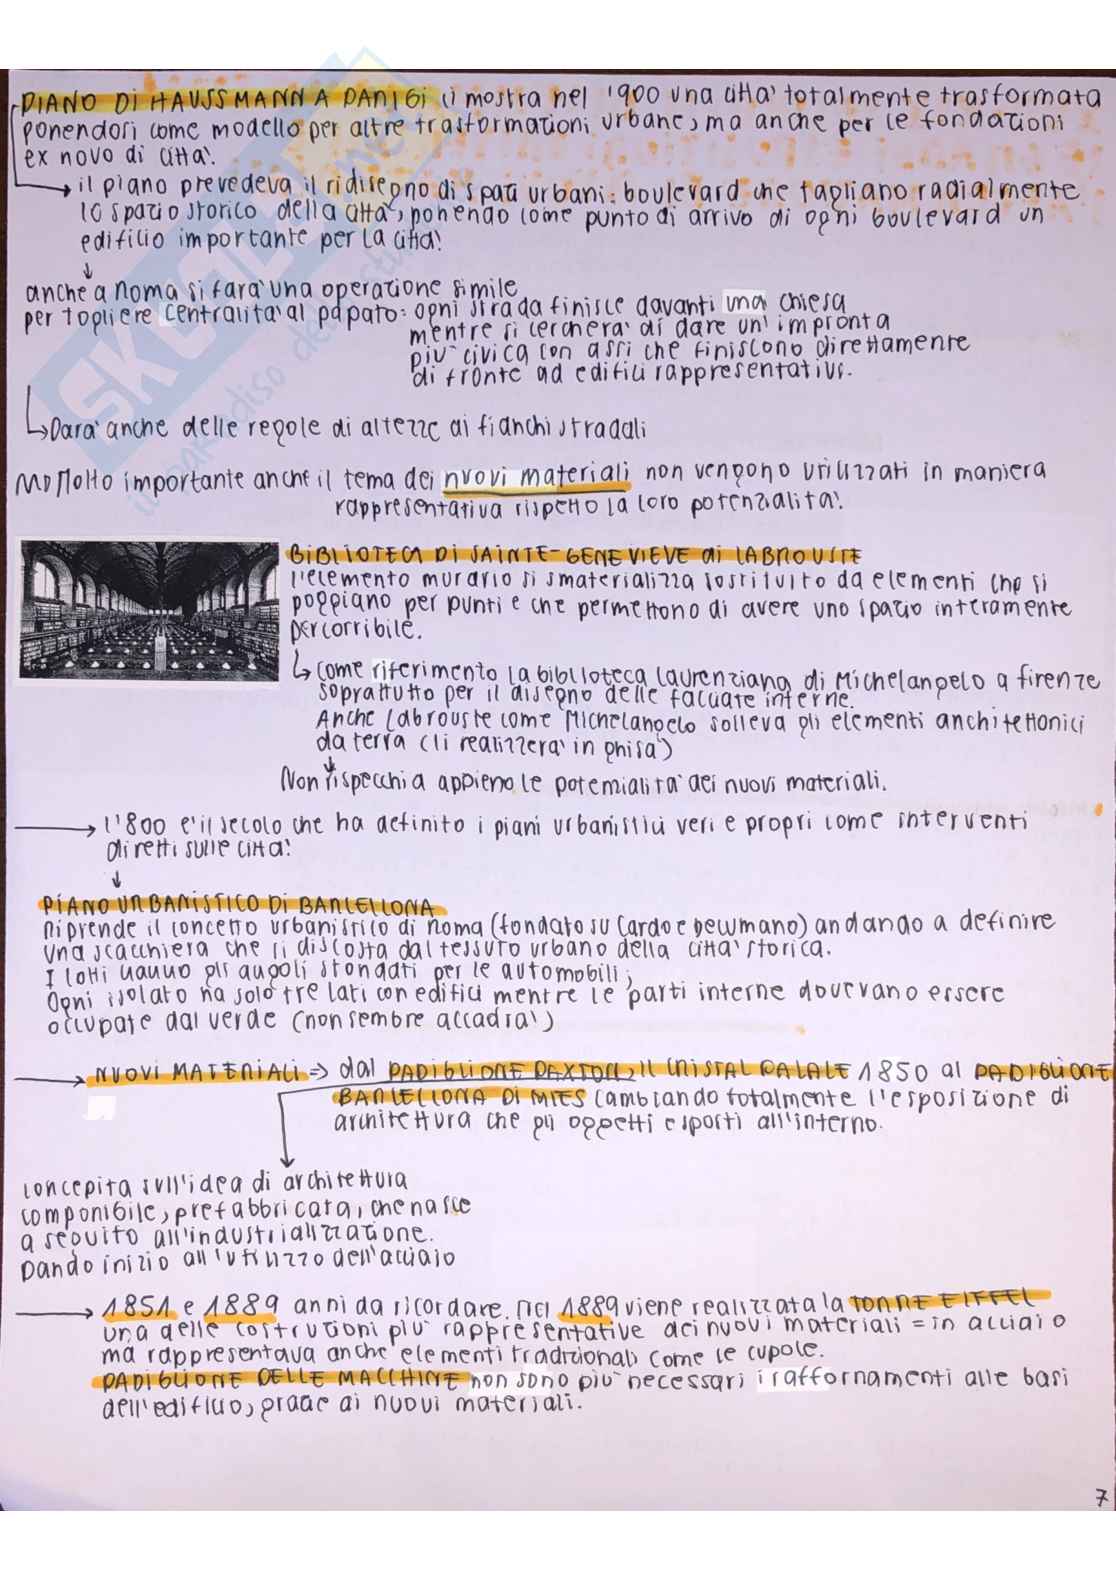 PIANO DI HAUSSMANN A PARIGI ci mostra nel '900 una città totalmente trasformata
ponendosi come modello per altre trasformazioni urbane, ma anche per le fondazioni
ex novo di città.
il piano prevedeva il ridisegno di spazi urbani: boulevard che tagliano radialmente
lo spazio storico della città, ponendo come punto di arrivo di ogni boulevard un
edificio importante per la città.
anche a Roma si farà una operazione simile
per togliere centralità al papato: ogni strada finisce davanti una chiesa
mentre si cercherà di dare un'impronta
più civica con assi che finiscono direttamente
di fronte ad edifici rappresentativi.
Darà anche delle regole di altezze ai fianchi stradali
Molto importante anche il tema dei nuovi materiali non vengono utilizzati in maniera
rappresentativa rispetto la loro potenzialità.
BIBLIOTECA DI SAINTE-GENEVIEVE di LABROUSTE
l'elemento murario si smaterializza sostituito da elementi che si
poggiano per punti e che permettono di avere uno spazio interamente
percorribile.
come riferimento la biblioteca laurenziana di Michelangelo a firenze
soprattutto per il disegno delle facciate interne.
Anche Labrouste come Michelangelo solleva gli elementi architettonici
da terra (li realizzerà in ghisa)
Non rispecchia appieno le potenzialità dei nuovi materiali.
l'800 è il secolo che ha definito i piani urbanistici veri e propri come interventi
diretti sulle città.
PIANO URBANISTICO DI BARCELLONA
Riprende il concetto urbanistico di Roma (fondato su Cardo e Decumano) andando a definire
una scacchiera che si discosta dal tessuto urbano della città storica.
I lotti hanno gli angoli stondati per le automobili;
Ogni isolato ha solo tre lati con edifici mentre le parti interne dovevano essere
occupate dal verde (non sembre accadrà)
NUOVI MATERIALI => dal PADIGLIONE PAXTON, il CRISTAL PALACE 1850 al PADIGLIONE
BARCELLONA DI MIES cambiando totalmente l'esposizione di
architettura che gli oggetti esposti all'interno.
concepita sull'idea di architettura
componibile, prefabbricata, che nasce
a seguito all'industrializzazione.
Dando inizio all'utilizzo dell'acciaio
1851 e 1889 anni da ricordare. Nel 1889 viene realizzata la TORRE EIFFEL
una delle costruzioni più rappresentative dei nuovi materiali = in acciaio
ma rappresentava anche elementi tradizionali come le cupole.
PADIGLIONE DELLE MACCHINE non sono più necessari i rafforzamenti alle basi
dell'edificio, grazie ai nuovi materiali.
7